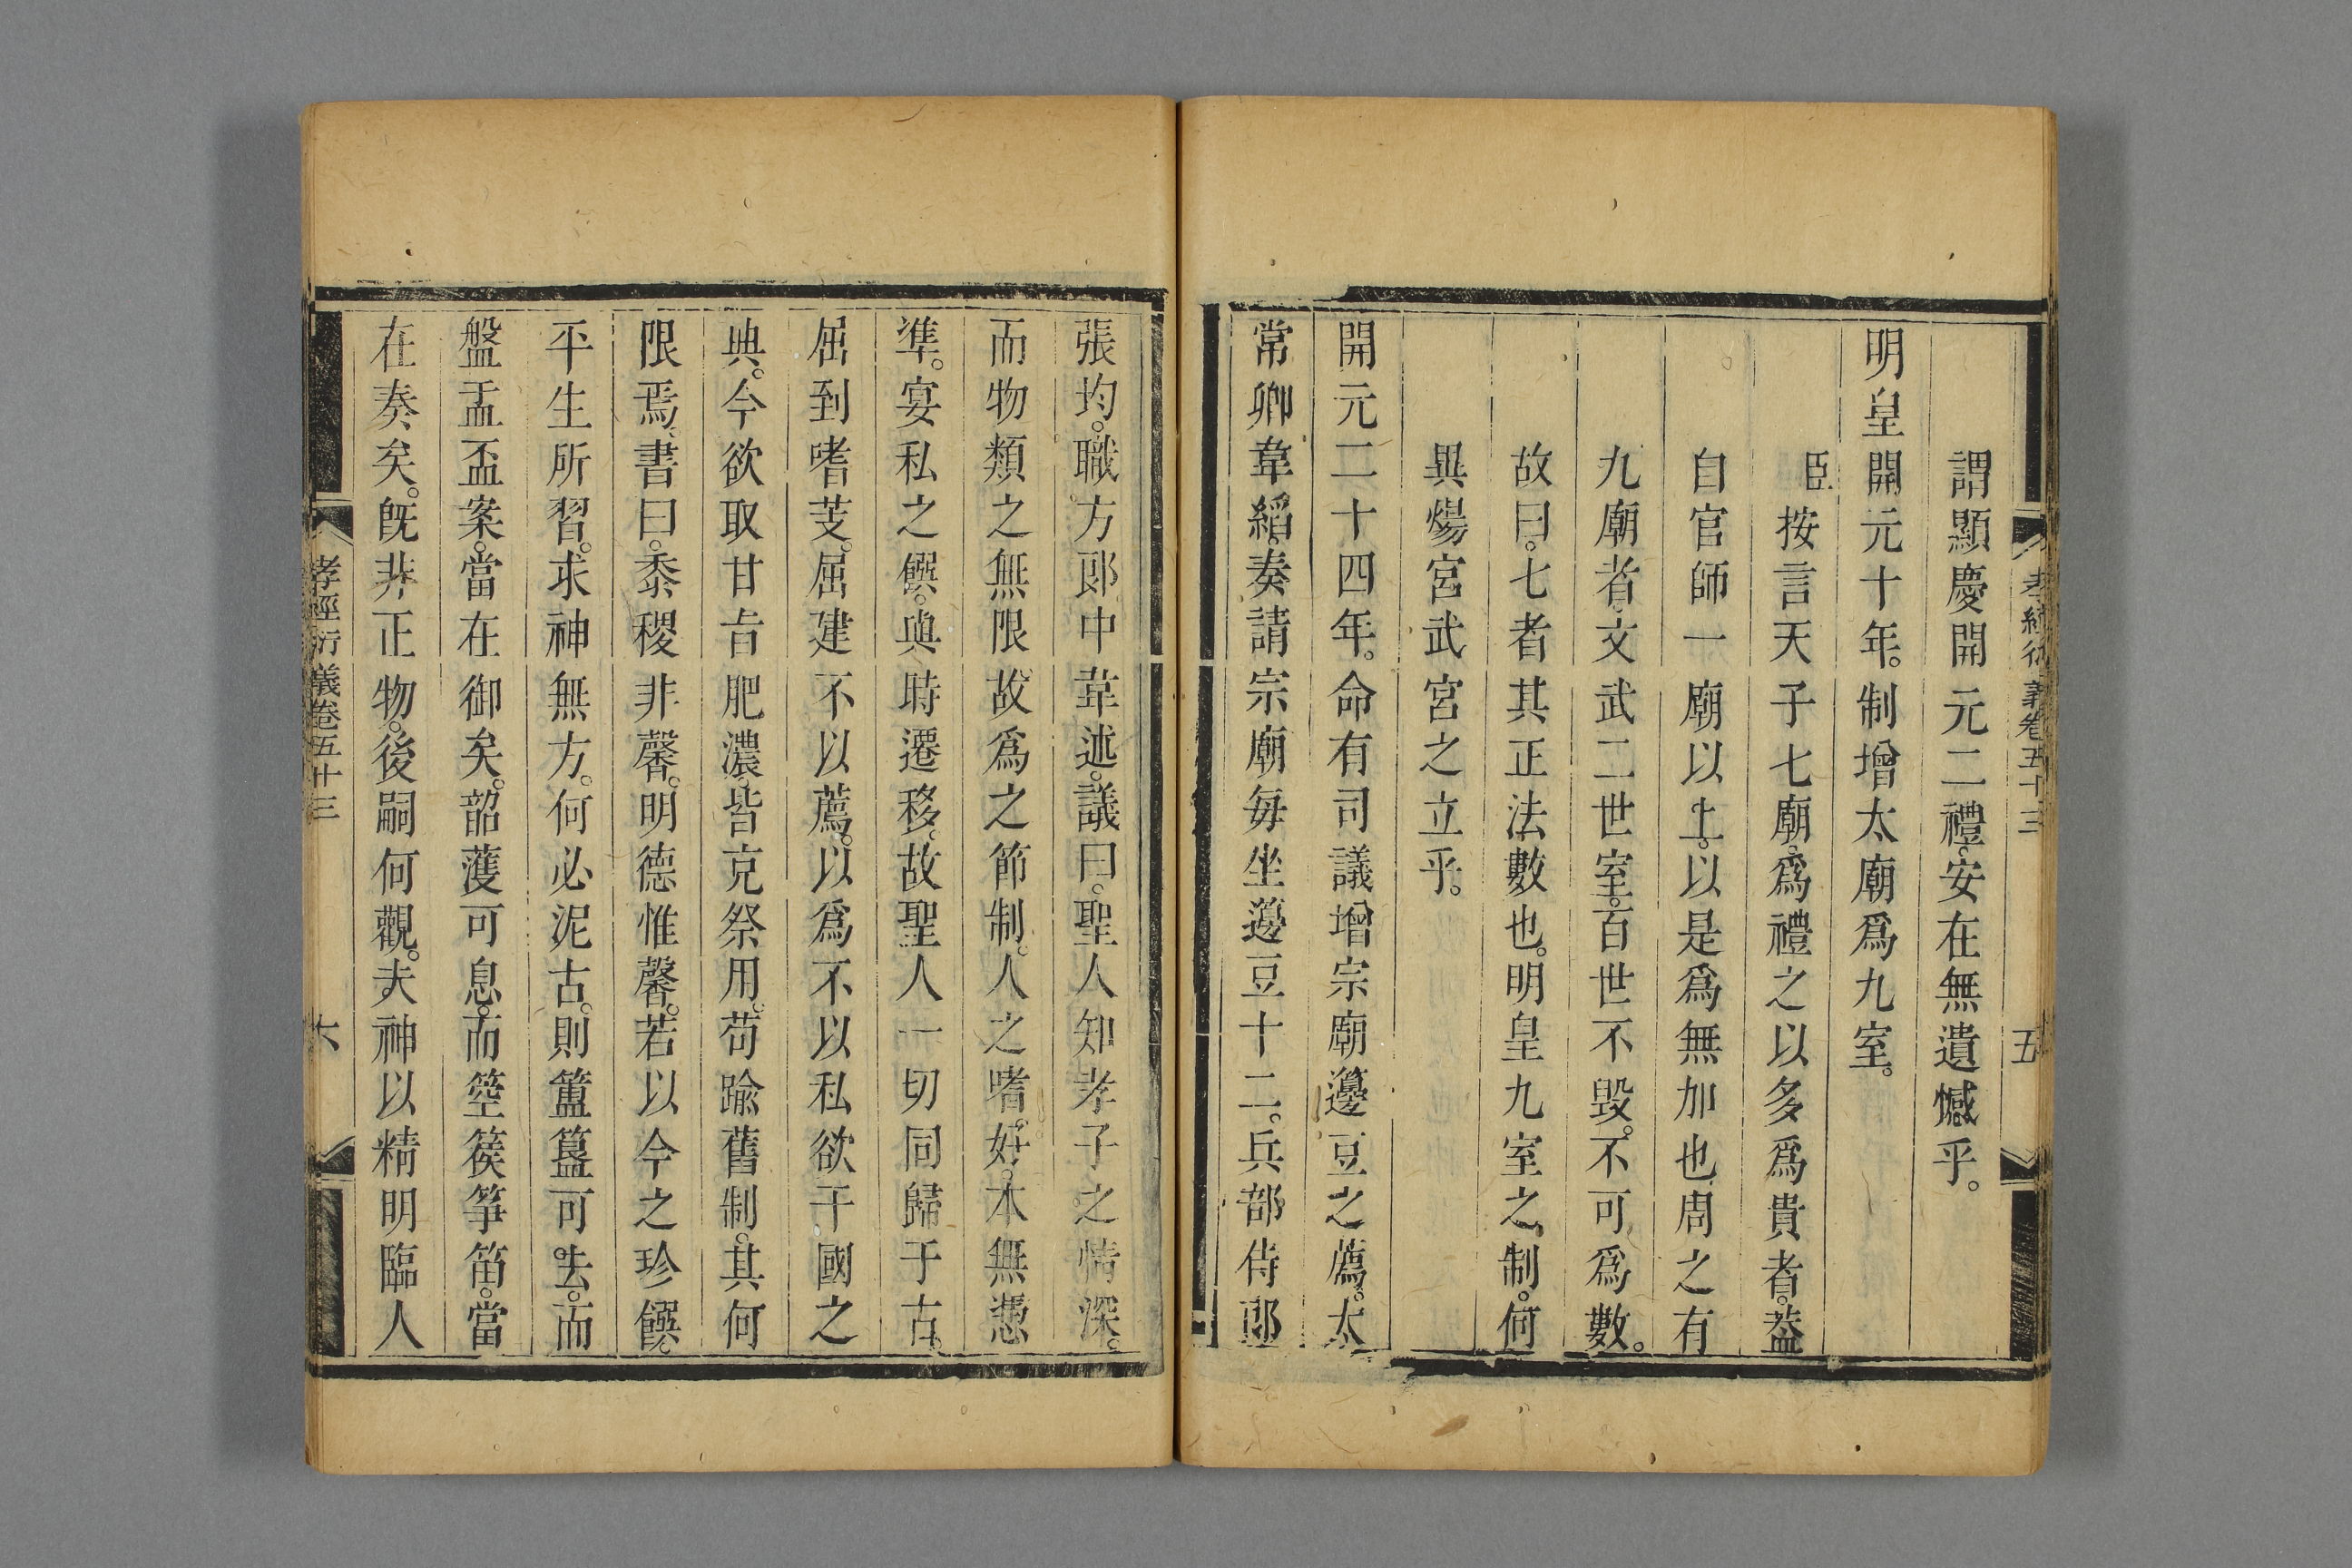 孝經衍義卷五十三 五
謂顯慶開元二禮安在無遺憾乎。
明皇開元十年。制增太廟爲九室。
臣按言天子七廟。爲禮之以多爲貴者。葢
自官師一廟以上。以是爲無加也。周之有
九廟者。文武二世室。百世不毁。不可爲數。
故曰。七者其正法數也。明皇九室之制。何
異煬宮武宮之立乎。
開元二十四年。命有司議增宗廟籩豆之薦。太
常卿韋縚奏請宗廟毎坐籩豆十二。兵部侍郎
張均。職方郎中韋述。議曰。聖人知孝子之情深。
而物類之無限。故爲之節制。人之嗜好。本無憑
準。宴私之饌。與時遷移。故聖人一切同歸于古。
屈到嗜芰。屈建不以薦。以爲不以私欲干國之
典。今欲取甘旨肥濃。皆充祭用。苟踰舊制。其何
限焉。書曰。黍稷非馨。明德惟馨。若以今之珍饌。
平生所習。求神無方。何必泥古。則簠簋可去。而
盤盂盃案。當在御矣。韶濩可息。而箜篌筝笛。當
在奏矣。旣非正物。後嗣何觀。夫神以精明臨人
孝經衍義卷五十三 六